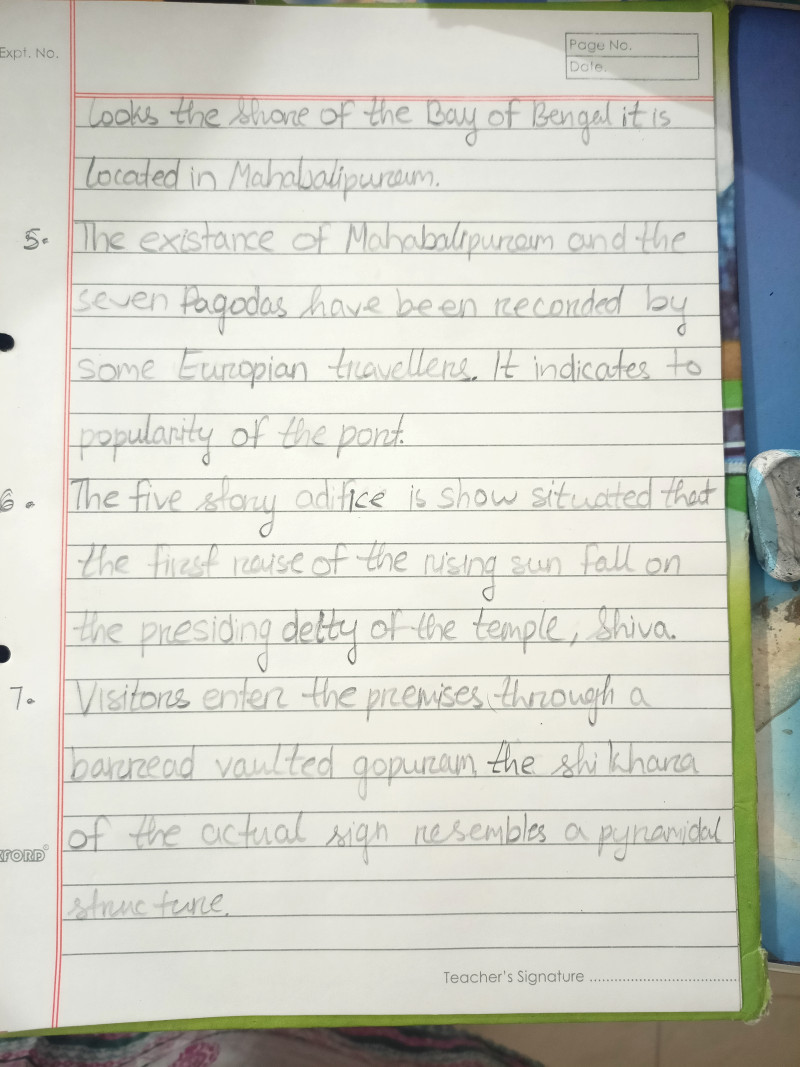 Expt. No.
Page No.
Date.
Looks the shore of the Bay of Bengal it is
located in Mahabalipuram.
5. The existance of Mahabalipuram and the
seven Pagodas have been recorded by
some Europian travellers. It indicates to
popularity of the port.
6. The five story adifice is show situated that
the first raise of the rising sun fall on
the presiding deity of the temple, Shiva.
7. Visitors enter the premises through a
barread vaulted gopuram, the shikhara
of the actual sign resembles a pyramidal
structure.
XFORD
Teacher's Signature